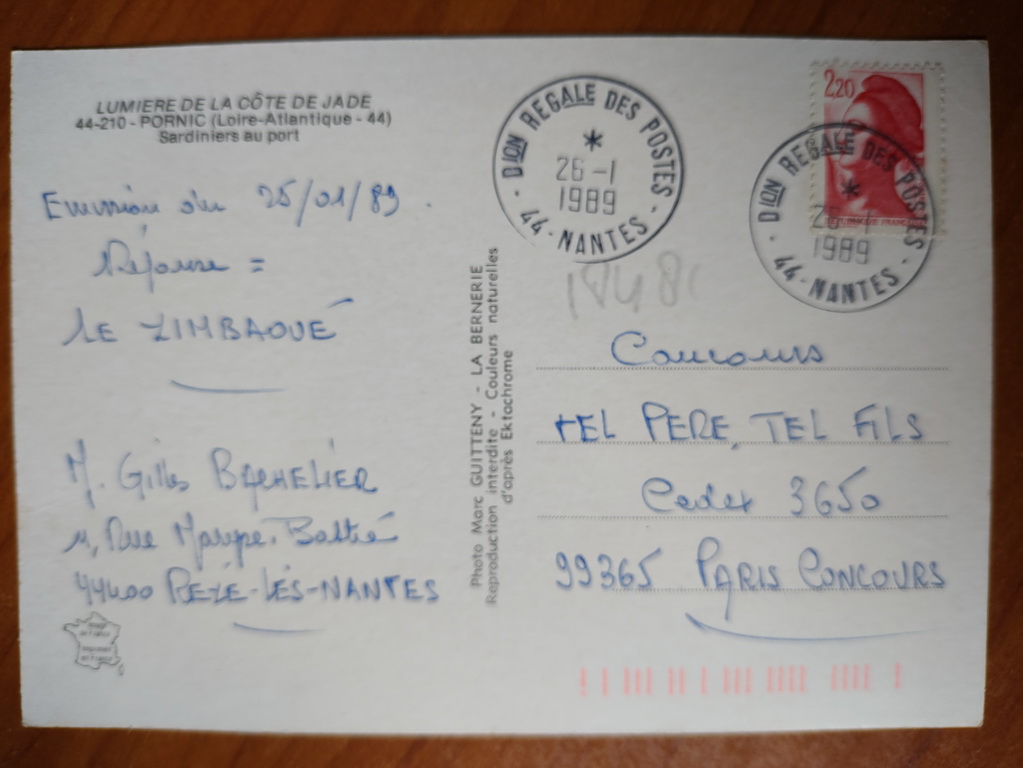 LUMIERE DE LA CÔTE DE JADE
44-210 - PORNIC (Loire-Atlantique - 44)
Sardiniers au port
Emission du 25/01/89.
Réponse =
LE ZIMBAOUÉ
M. Gilles BACHELIER
44400 REZÉ-LÈS-NANTES
Photo Marc GUITTENY - LA BERNERIE
Reproduction interdite - Couleurs naturelles
d'après Ektachrome
DION REGALE DES POSTES
26-1
1989
44-NANTES
2,20
DION REGALE DES POSTES
26-1
1989
44-NANTES
Concours
TEL PERE, TEL FILS
Cedex 3650
99365 PARIS CONCOURS